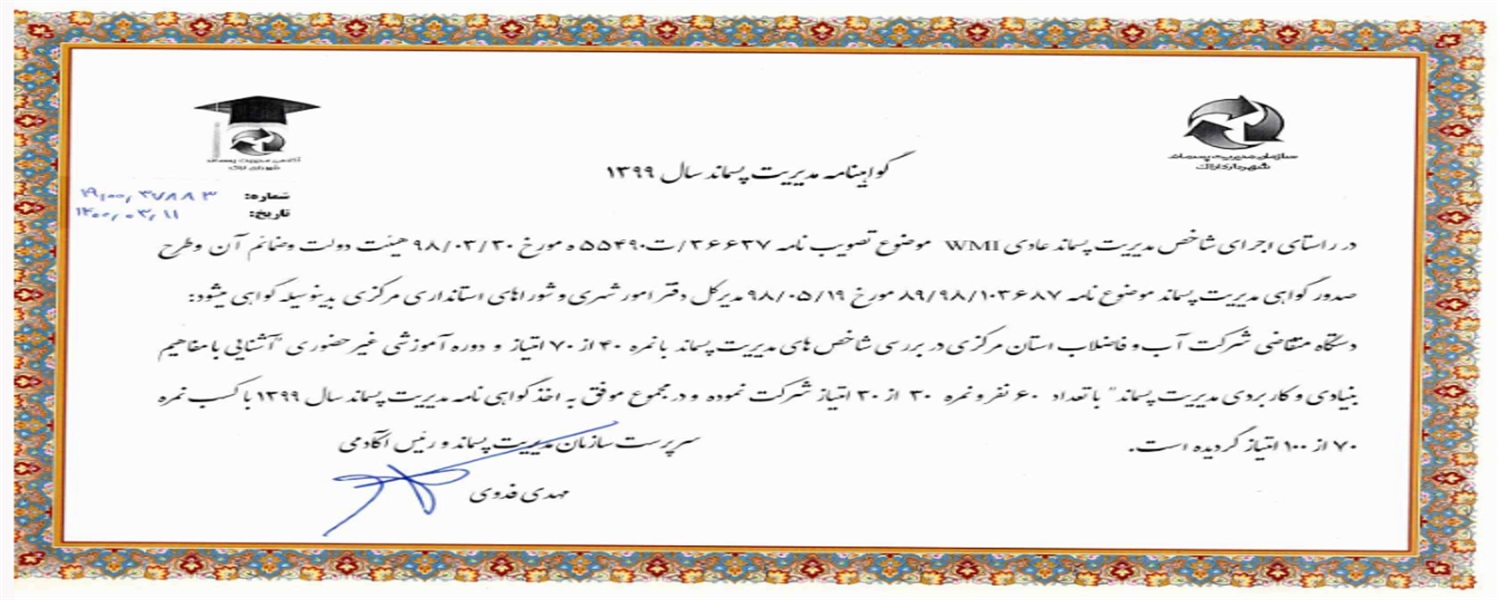 سازمان مدیریت پسماند
شهرداری اراک
آکادمی مدیریت پسماند
شهرداری اراک
گواهینامه مدیریت پسماند سال ۱۳۹۹
شماره:
تاریخ: ۱۴۰۰/۰۳/۱۱
در راستای اجرای شاخص مدیریت پسماند عادی WMI موضوع تصویب نامه ۳۶۶۳۷/ت۵۵۴۹۰ ه مورخ ۹۸/۰۳/۳۰ هیئت دولت وضائم آن وطرح
صدور گواهی مدیریت پسماند موضوع نامه ۸۹/۹۸/۱۰۳۶۸۷ مورخ ۹۸/۰۵/۱۹ مدیرکل دفتر امور شهری و شوراهای استانداری مرکزی بدینوسیله گواهی میشود:
دستگاه متقاضی شرکت آب و فاضلاب استان مرکزی در بررسی شاخص های مدیریت پسماند با نمره ۴۰ از ۷۰ امتیاز و دوره آموزشی غیر حضوری "آشنایی با مفاهیم
بنیادی و کاربردی مدیریت پسماند" با تعداد ۶۰ نفر و نمره ۳۰ از ۳۰ امتیاز شرکت نموده و در مجموع موفق به اخذ گواهی نامه مدیریت پسماند سال ۱۳۹۹ با کسب نمره
۷۰ از ۱۰۰ امتیاز گردیده است.
سرپرست سازمان مدیریت پسماند و رئیس آکادمی
مهدی فدوی